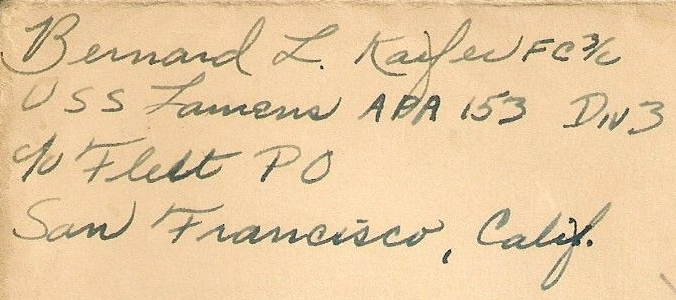 Bernard L. Kaifer FC 3/c
USS Laurens APA 153 Div 3
c/o Fleet PO
San Francisco, Calif.